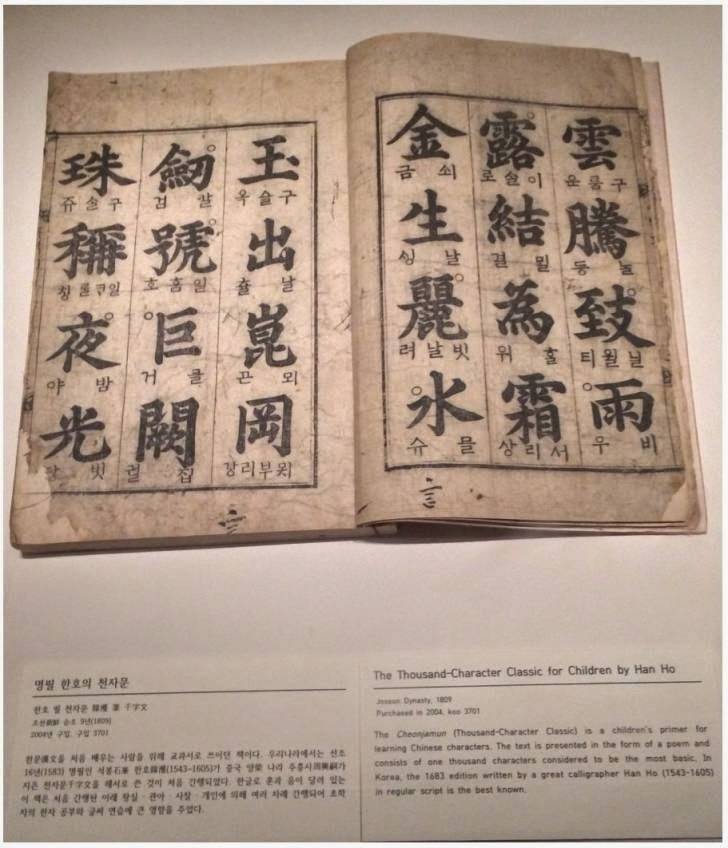 雲 구룸운 騰 놀등 致 닐윌티 雨 비우
露 이슬로 結 밀결 為 홀위 霜 서리상
金 쇠금 生 날싱 麗 빗날려 水 믈슈
言
玉 구슬옥 出 날츌 崑 뫼곤 岡 묏부리강
劒 갈검 號 일홈호 巨 클거 闕 집궐
珠 구슬쥬 稱 일쿠롤칭 夜 밤야 光 빗광
言
명필 한호의 천자문
한호 필 천자문 韓濩 筆 千字文
조선朝鮮 순조 9년(1809)
2004년 구입, 구입 3701
한문漢文을 처음 배우는 사람을 위해 교과서로 쓰이던 책이다. 우리나라에서는 선조
16년(1583) 명필인 석봉石峯 한호韓濩(1543-1605)가 중국 양梁 나라 주흥사周興嗣가
지은 천자문千字文을 해서로 쓴 것이 처음 간행되었다. 한글로 훈과 음이 달려 있는
이 책은 처음 간행된 이래 왕실·관아·사찰·개인에 의해 여러 차례 간행되어 초학
자의 한자 공부와 글씨 연습에 큰 영향을 주었다.
The Thousand-Character Classic for Children by Han Ho
Joseon Dynasty, 1809
Purchased in 2004, koo 3701
The Cheonjamun (Thousand-Character Classic) is a children's primer for
learning Chinese characters. The text is presented in the form of a poem and
consists of one thousand characters considered to be the most basic. In
Korea, the 1683 edition written by a great calligrapher Han Ho (1543-1605)
in regular script is the best known.